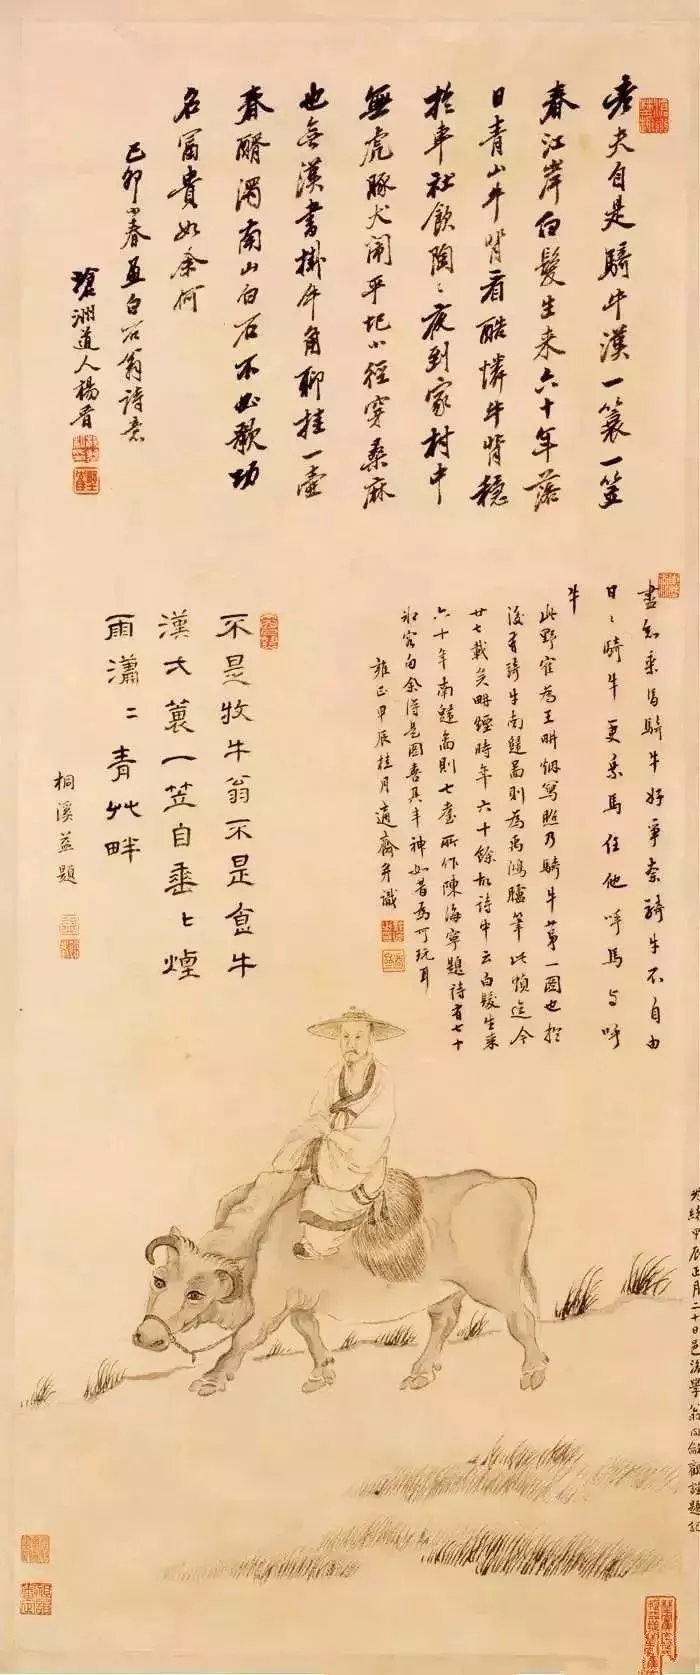 老夫自是騎牛漢一蓑一笠
春江岸白髮生來六十年落
日青山牛背看酷憐牛背穩
於車社飲陶〻夜到家村中
無虎豚犬鬧平圯小徑穿桑麻
也無漢書掛牛角聊挂一壺
春醑濁南山白石不必歌功
名富貴如余何
己卯小春畫白石翁詩意
滄洲道人楊晉
盡知乘馬騎牛好爭奈騎牛不自由
日〻騎牛更乘馬任他呼馬与呼
牛
此野寉為王畊烟寫照乃騎牛苐一圖也於
後有騎牛南𨗿圖則為禹鴻臚筆此幀迄今
廿七載矣畊煙時年六十餘故詩中云白髮生来
六十年南𨗿圖則七耋所作陳海寧題詩有七十
余得是圖喜其丰神如昔為可玩耳
雍正甲辰桂月適齋弁識
不是牧牛翁不是飯牛
漢大蓑一笠自垂〻煙
雨瀟〻青艸畔
桐溪益題
光緒甲辰正月二十日邑後學翁同龢觀謹題記